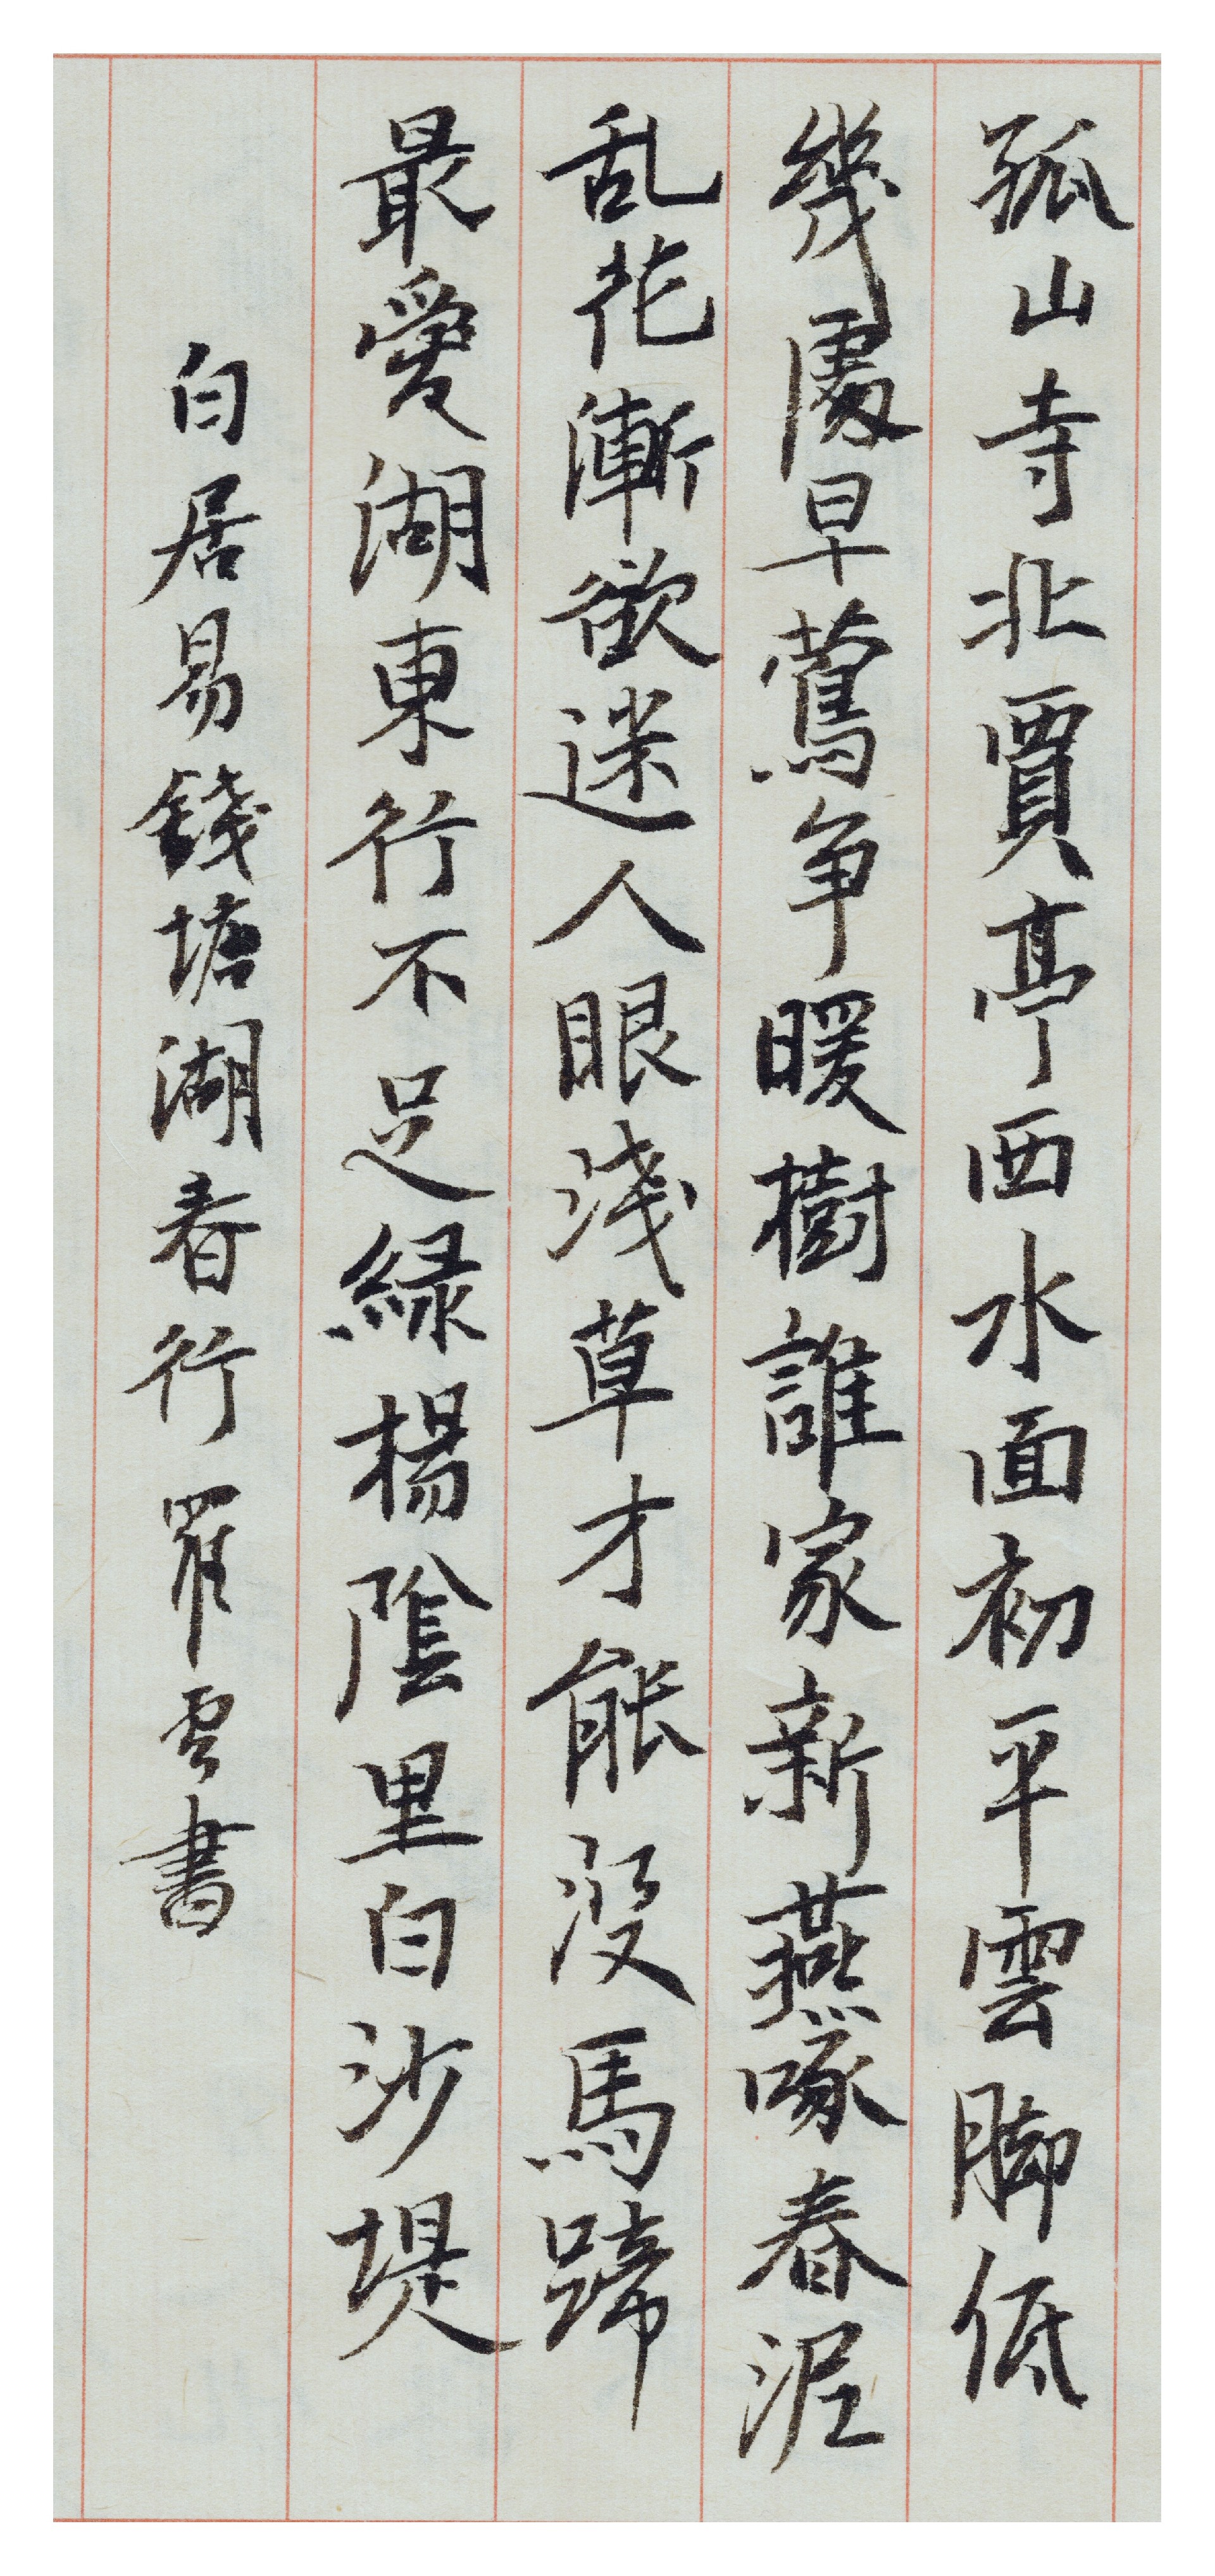 孤山寺北賈亭西水面初平雲脚低
幾處早鶯争暖樹誰家新燕啄春泥
乱花漸欲迷人眼淺草才能沒馬蹄
最愛湖東行不足緑楊陰里白沙堤
白居易錢塘湖春行羅雲書